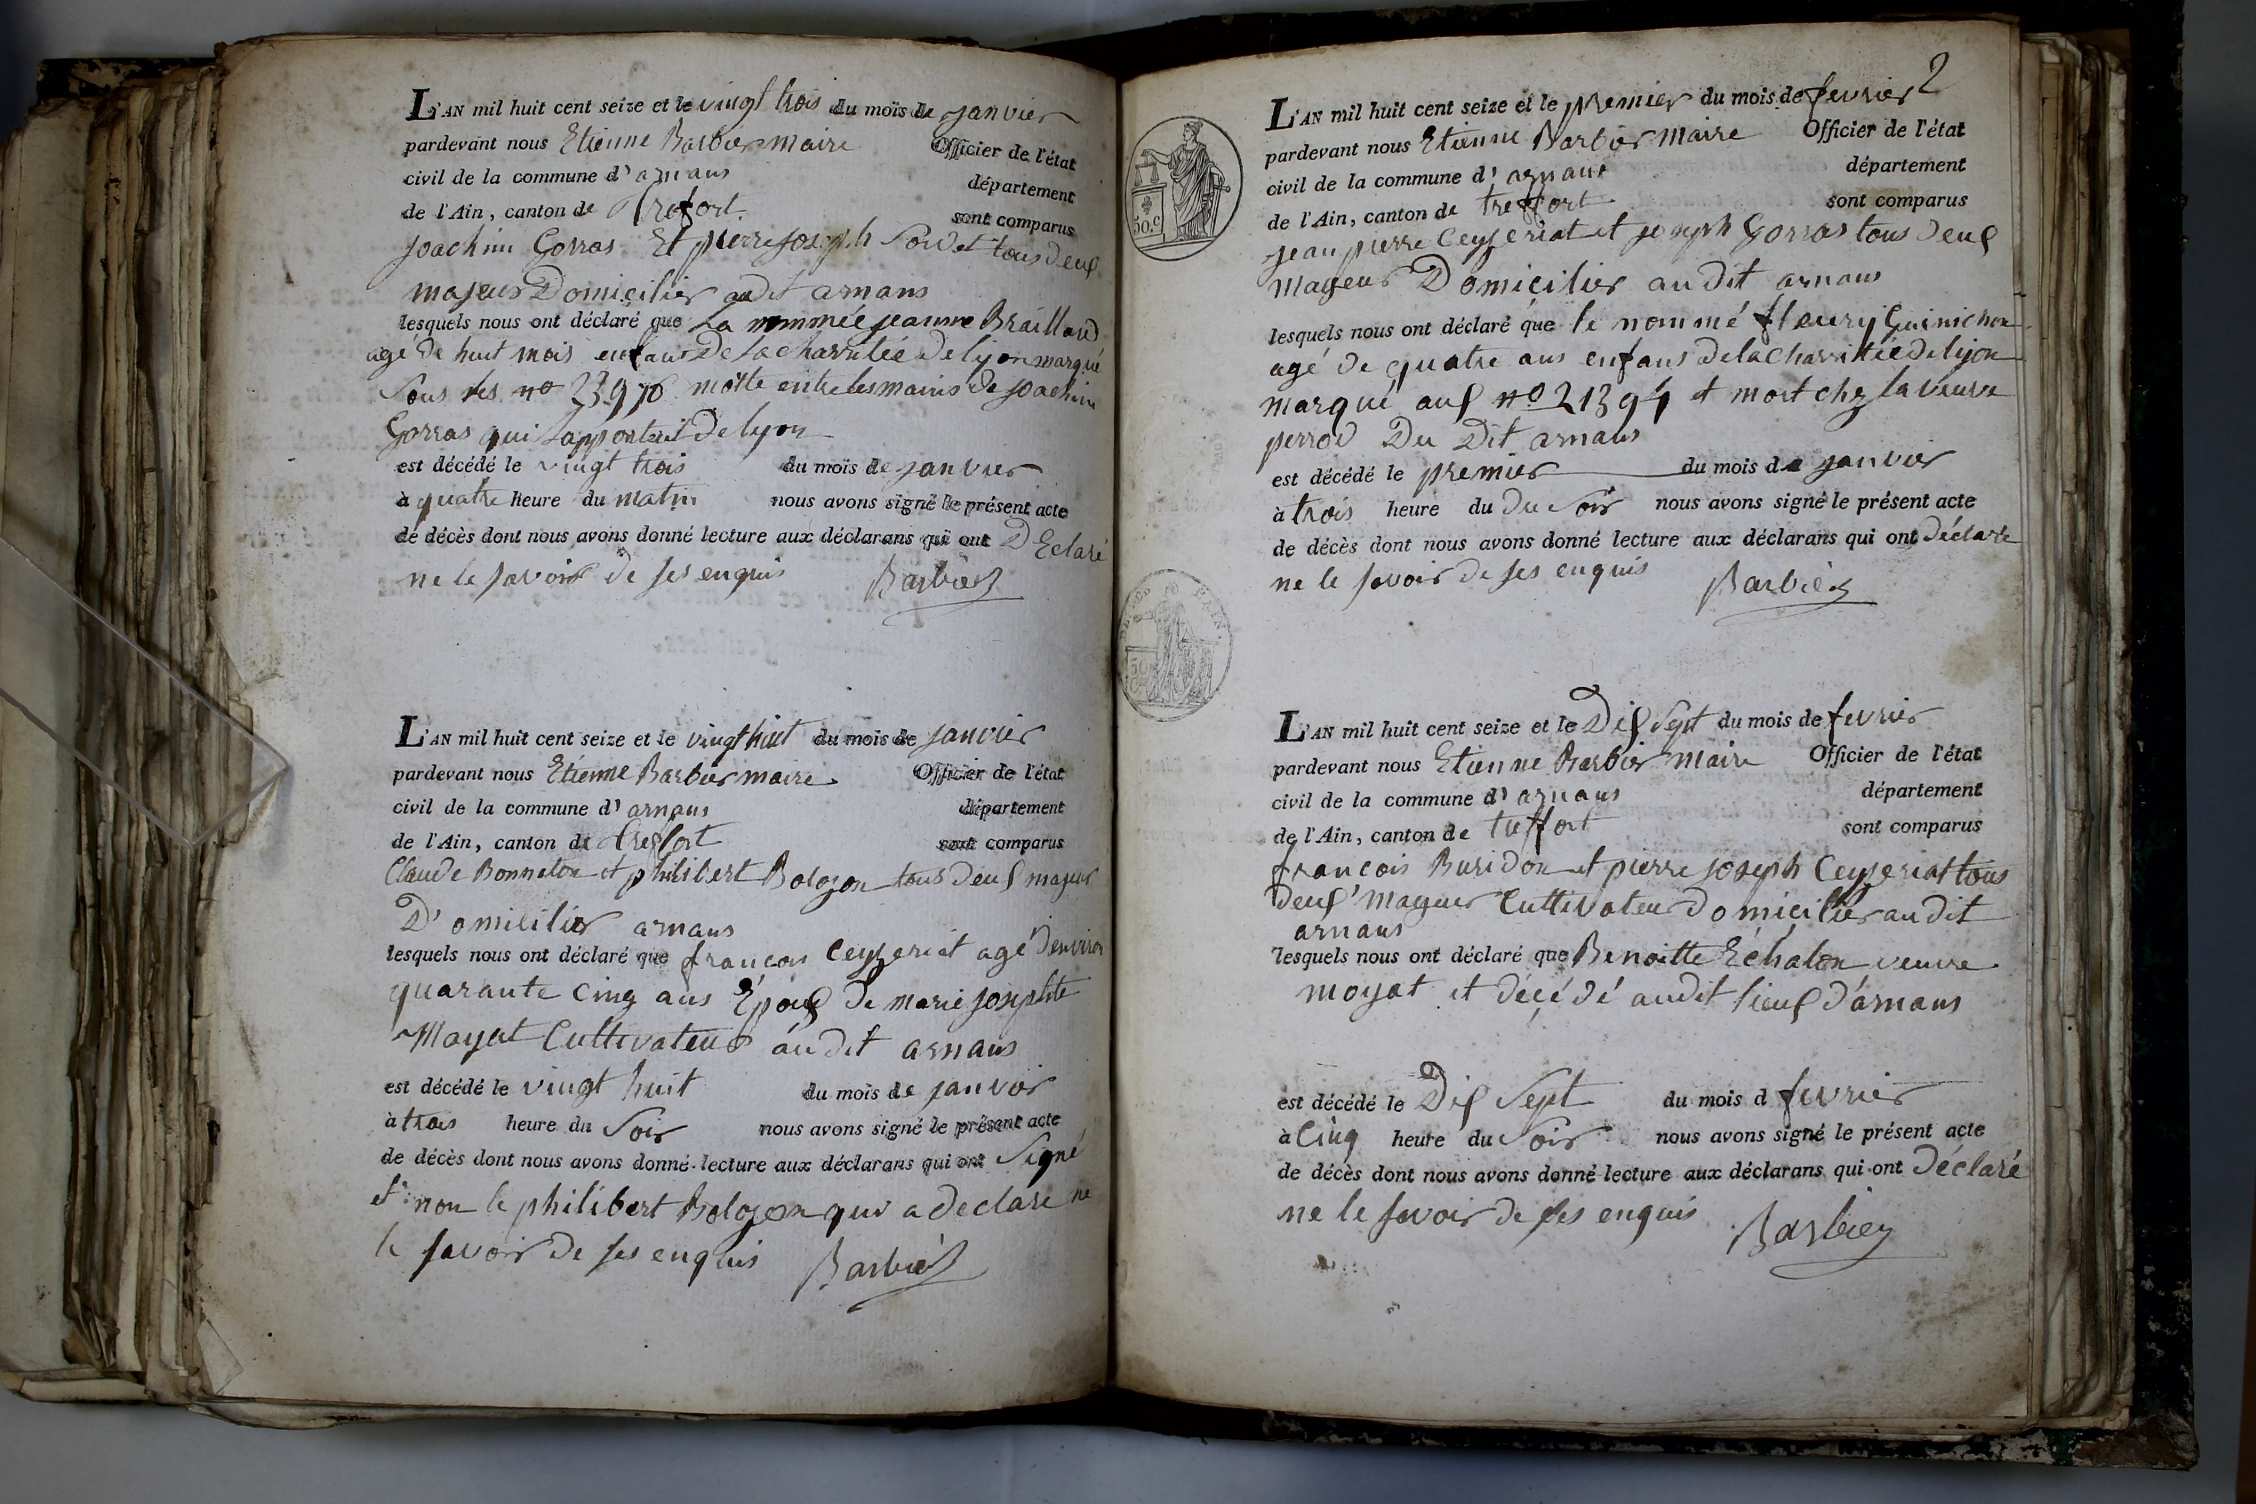 L'AN mil huit cent seize et le vingt trois du mois de janvier
pardevant nous Etienne Barbier maire Officier de l'état
civil de la commune d' arnans département
de l'Ain, canton de trefort sont comparus
joachim Gorras Et pierre joseph tous deuf
majeur Domicilier audit arnans
lesquels nous ont déclaré que La nommée jeanne Braillard
agé de huit mois enfans De la charritée De lyon marqué
Sous les no 23970 morte entre les mains de joachim
Gorras qui Lapportait De lyon
est décédé le vingt trois du mois de janvier
à quatre heure du matin nous avons signé le présent acte
de décès dont nous avons donné lecture aux déclarans qui ont DEclaré
ne le savoir de ses enquis Barbier
L'AN mil huit cent seize et le vingt huit du mois de janvier
pardevant nous Etienne Barbier maire Officier de l'état
civil de la commune d' arnans département
de l'Ain, canton de treffort sont comparus
Claude Bonneton et philibert Bolozon tous deuf majeur
D'omicilier arnans
lesquels nous ont déclaré que francois Ceyzeriat agé denviron
quarante cinq ans Épouf de marie josephte
Moyat Cultivateur audit arnans
est décédé le vingt huit du mois de janvier
à trois heure du Soir nous avons signé le présent acte
de décès dont nous avons donné lecture aux déclarans qui ont Signé
et non le philibert Bolozon qui a declaré ne
le savoir de ses enquis Barbier
2
L'AN mil huit cent seize et le premier du mois de fevrier
pardevant nous Etienne Barbier maire Officier de l'état
civil de la commune d' arnans département
de l'Ain, canton de treffort sont comparus
jean pierre Ceyzeriat et joseph Gorras tous deuf
mayeur Domicilier audit arnans
lesquels nous ont déclaré que le nommé fleury Guinichon
agé de quatre ans enfans de la Charritée De lyon
marqué auf no 21394 et mort chez la veuve
perrod Du Dit arnans
est décédé le premier du mois de janvier
à trois heure du du Soir nous avons signé le présent acte
de décès dont nous avons donné lecture aux déclarans qui ont déclaré
ne le savoir de ses enquis Barbier
50.c
L'AN mil huit cent seize et le Dif Sept du mois de fevrier
pardevant nous Etienne Barbier maire Officier de l'état
civil de la commune d' arnans département
de l'Ain, canton de treffort sont comparus
francois Buridon et pierre joseph Ceyzeriat tous
deuf mayeur Cultivateur domicilier audit
arnans
lesquels nous ont déclaré que Benoitte Échalon veuve
moyat et décédé audit lieuf d'arnans
est décédé le Dif Sept du mois d fevrier
à cinq heure du Soir nous avons signé le présent acte
de décès dont nous avons donné lecture aux déclarans qui ont déclaré
ne le savoir de ses enquis Barbier